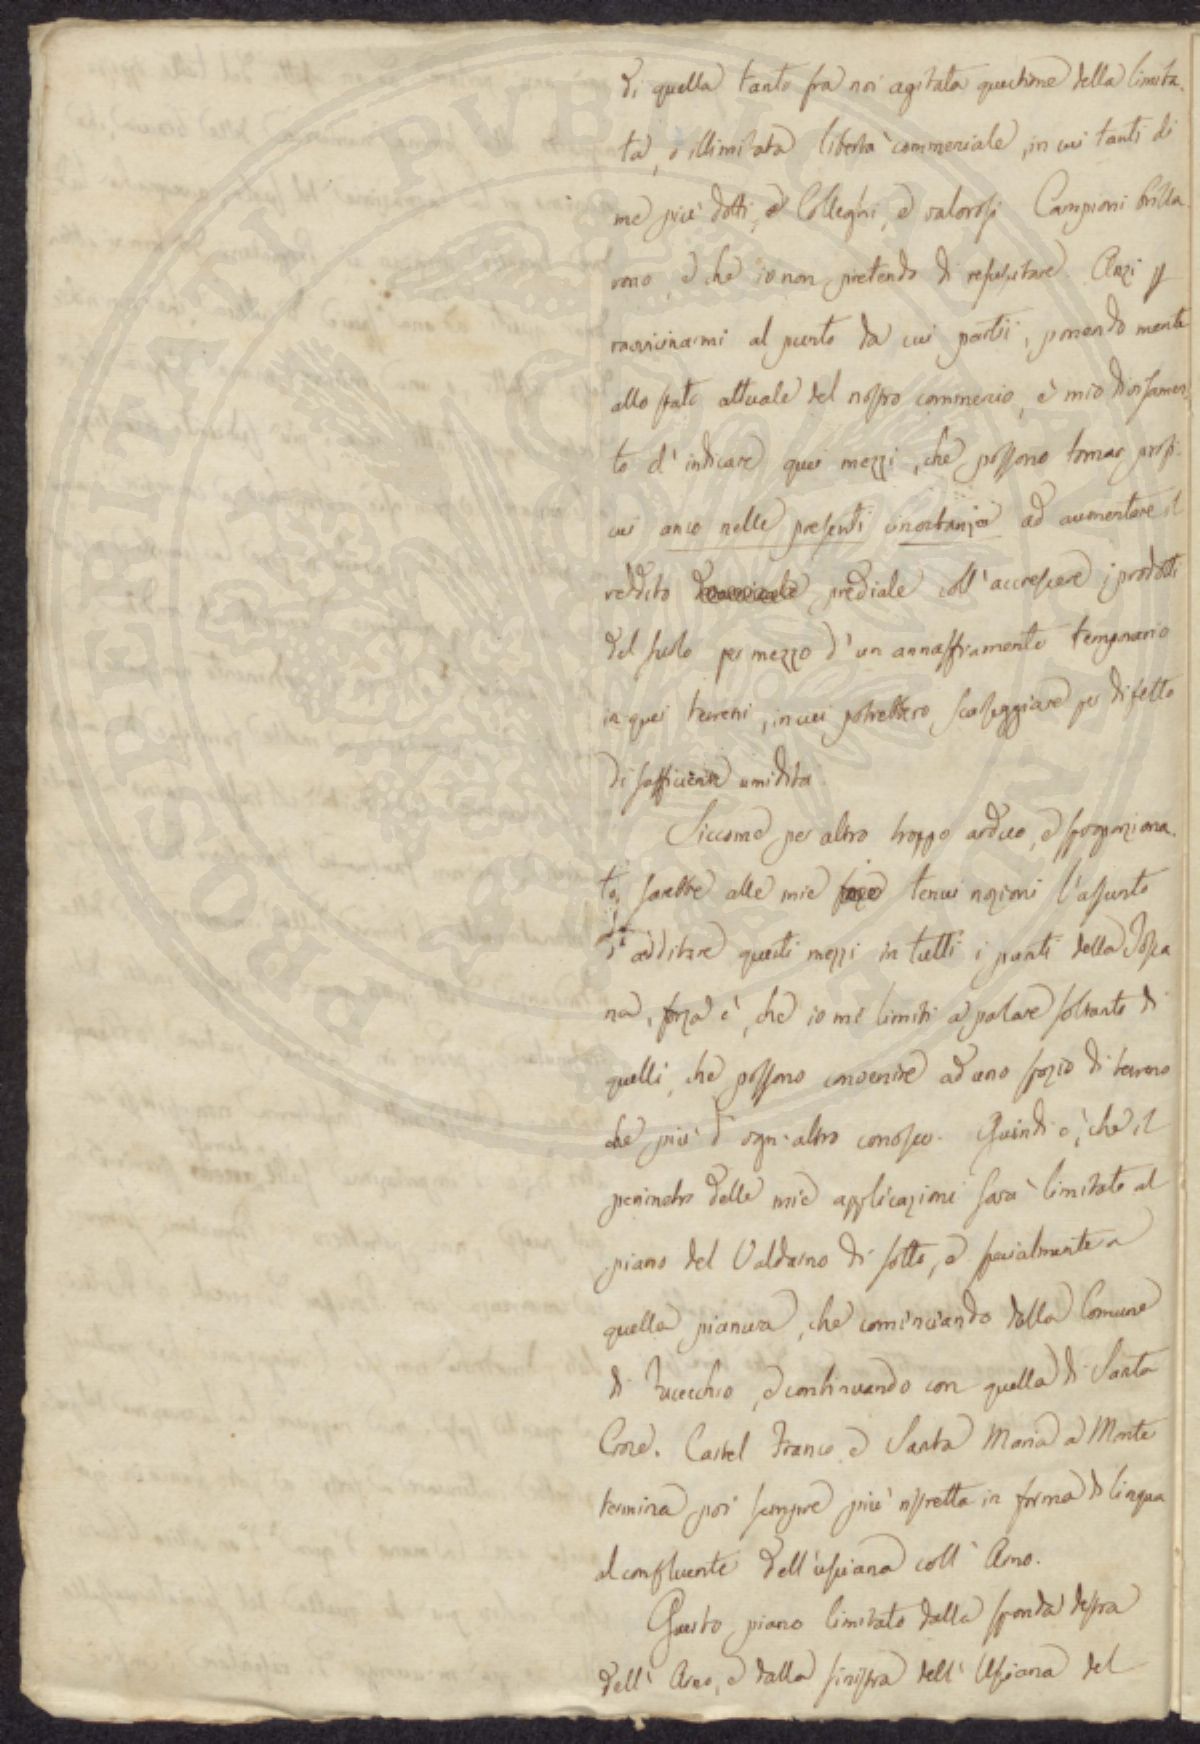 di quella tanto fra noi agitata questione della limita-
ta, o illimitata libertà commerciale, in cui tanti di
me più dotti, e Colleghi, e valorosi Campioni brilla-
rono, e che io non pretendo di resuscitare. Anzi p
ravvicinarmi al punto da cui partii, ponendo mente
allo stato attuale del nostro commercio, è mio divisamen-
to d'indicare quei mezzi, che possono tornar profi-
cui anco nelle presenti circostanze ad aumentare il
reddito prediale coll'accrescere i prodotti
del suolo per mezzo d'un annaffiamento temporario
in quei terreni, in cui potrebbero scarseggiare per difetto
di sufficiente umidità.
Siccome per altro troppo arduo, e sproporziona-
to sarebbe alle mie tenui nozioni l'assunto
di additare questi mezzi in tutti i punti della Tosca
na, forza è, che io mi limiti a parlare soltanto di
quelli, che possono convenire ad uno spazio di terreno
che più d'ogni altro conosco. Quindi è, che il
perimetro delle mie applicazioni sarà limitato al
piano del Valdarno di sotto, e specialmente a
quella pianura, che cominciando dalla Comune
di Fucecchio, e continuando con quella di Santa
Croce, Castel Franco, e Santa Maria a Monte
termina poi sempre più ristretta in forma di lingua
al confluente dell'usciana coll'Arno.
Questo piano limitato dalla sponda destra
dell'Arno, e dalla sinistra dell'Usciana del
PROSPERITATI PVBLICAE